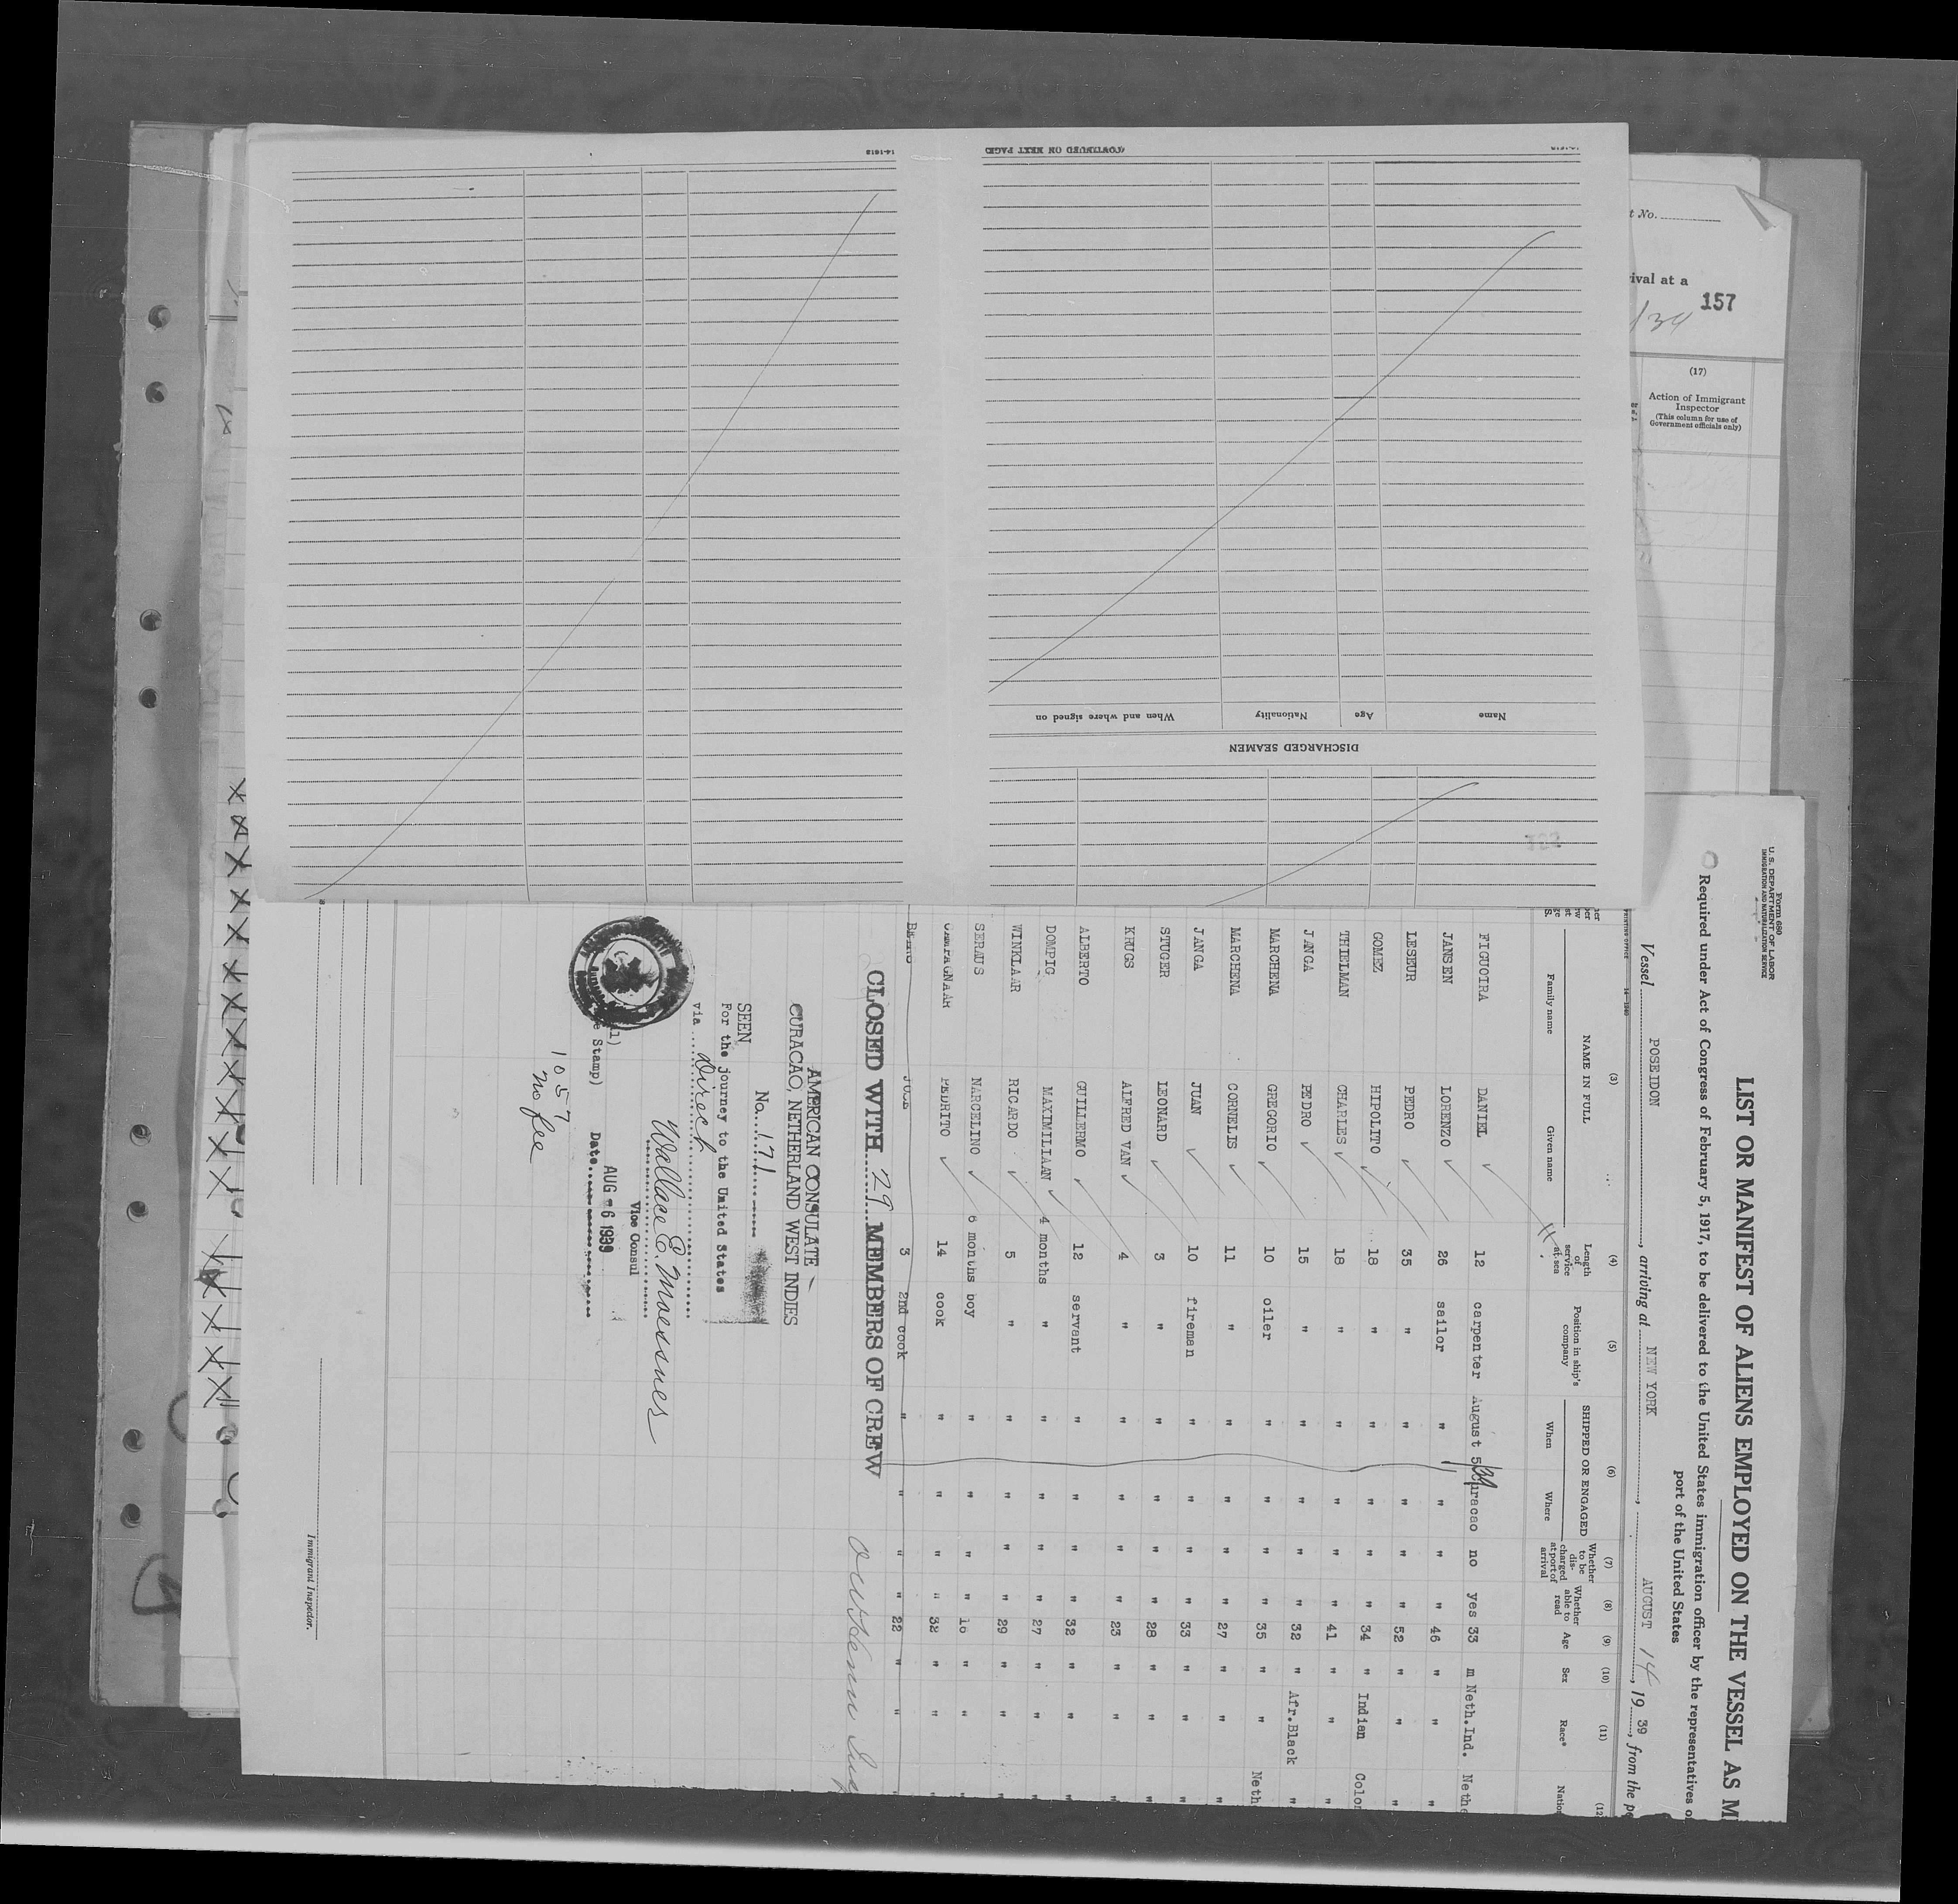 14-1612
(CONTINUED ON NEXT PAGE)
DISCHARGED SEAMEN
Name Age Nationality When and where signed on
t No.
ival at a
157
/34
(17)
Action of Immigrant
Inspector
(This column for use of
Government officials only)
Form 680
U. S. DEPARTMENT OF LABOR
IMMIGRATION AND NATURALIZATION SERVICE
LIST OR MANIFEST OF ALIENS EMPLOYED ON THE VESSEL AS M
Required under Act of Congress of February 5, 1917, to be delivered to the United States immigration officer by the representatives o
port of the United States
Vessel POSEIDON, arriving at NEW YORK, AUGUST 14, 19 39, from the po
(3) (4) (5) (6) (7) (8) (9) (10) (11) (12
NAME IN FULL
Family name Given name
Length of service at sea
Position in ship's company
SHIPPED OR ENGAGED
When Where
Whether to be discharged at port of arrival
Whether able to read
Age Sex Race* Nation
FIGUOIRA DANIEL 12 carpenter August 5 Curacao no yes 33 m Neth.Ind. Nethe
JANSEN LORENZO 26 sailor " " " " 46 " "
LESEUR PEDRO 35 " " " " " 52 " " "
GOMEZ HIPOLITO 18 " " " " " 34 " Indian Colom
THIELMAN CHARLES 18 " " " " " 41 " " "
JANGA PEDRO 15 " " " " " 32 " Afr.Black "
MARCHENA GREGORIO 10 oiler " " " " 35 " " Neth
MARCHENA CORNELIS 11 " " " " " 27 " "
JANGA JUAN 10 fireman " " " " 33 " " "
STUGER LEONARD 3 " " " " " 28 " " "
KRUGS ALFRED VAN 4 " " " " " 23 " " "
ALBERTO GUILLERMO 12 servant " " " " 32 " " "
DOMPIG MAXIMILIAAN 4 months " " " " " 27 " " "
WINKLAAR RICARDO 5 " " " " " 29 " " "
SERMUS NARCELINO 6 months boy " " " " 16 " " "
PEDRITO 14 cook " " " " 32 " " "
3 2nd cook " " " " 22 " " "
CLOSED WITH 29 MEMBERS OF CREW
AMERICAN CONSULATE
CURACAO, NETHERLAND WEST INDIES
No. 171
SEEN
For the journey to the United States
via Direct
Wallace E. Moessner
Vice Consul
Date AUG -6 1939
e Stamp)
1057
no fee
Immigrant Inspector.